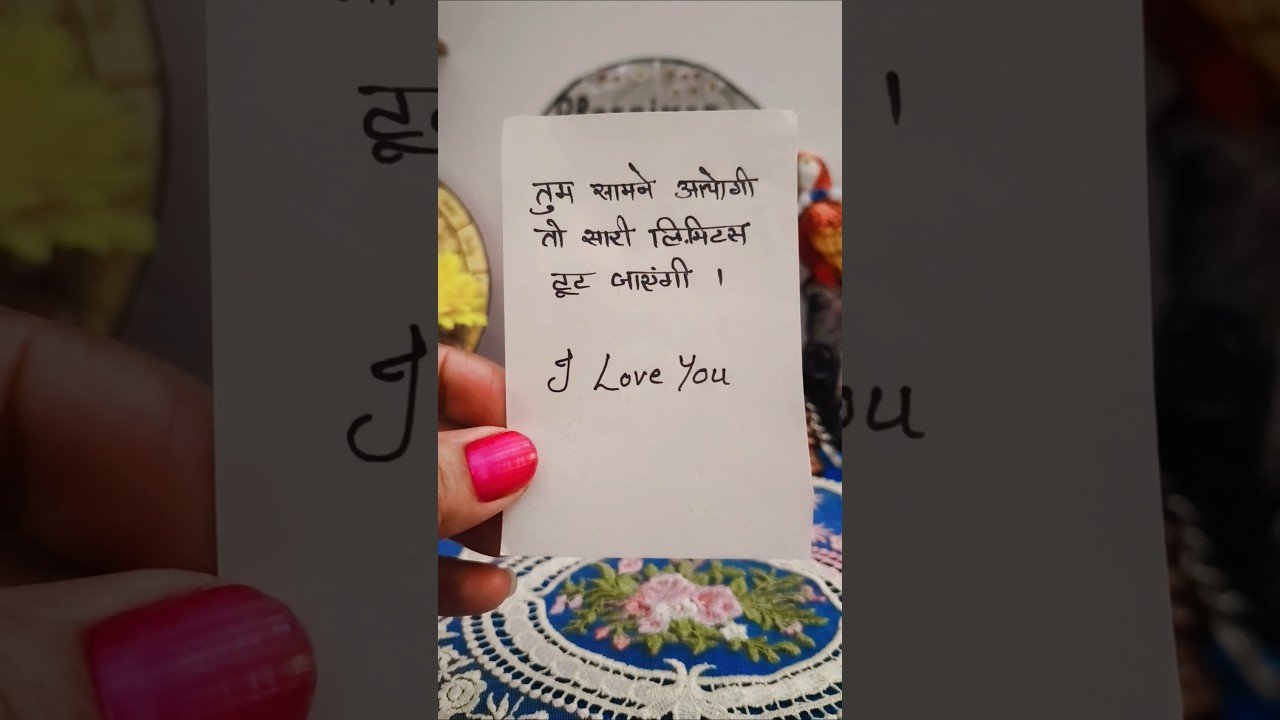 तुम सामने आयोगी
तो सारी लिमिटस
टूट जाएंगी ।
I Love You